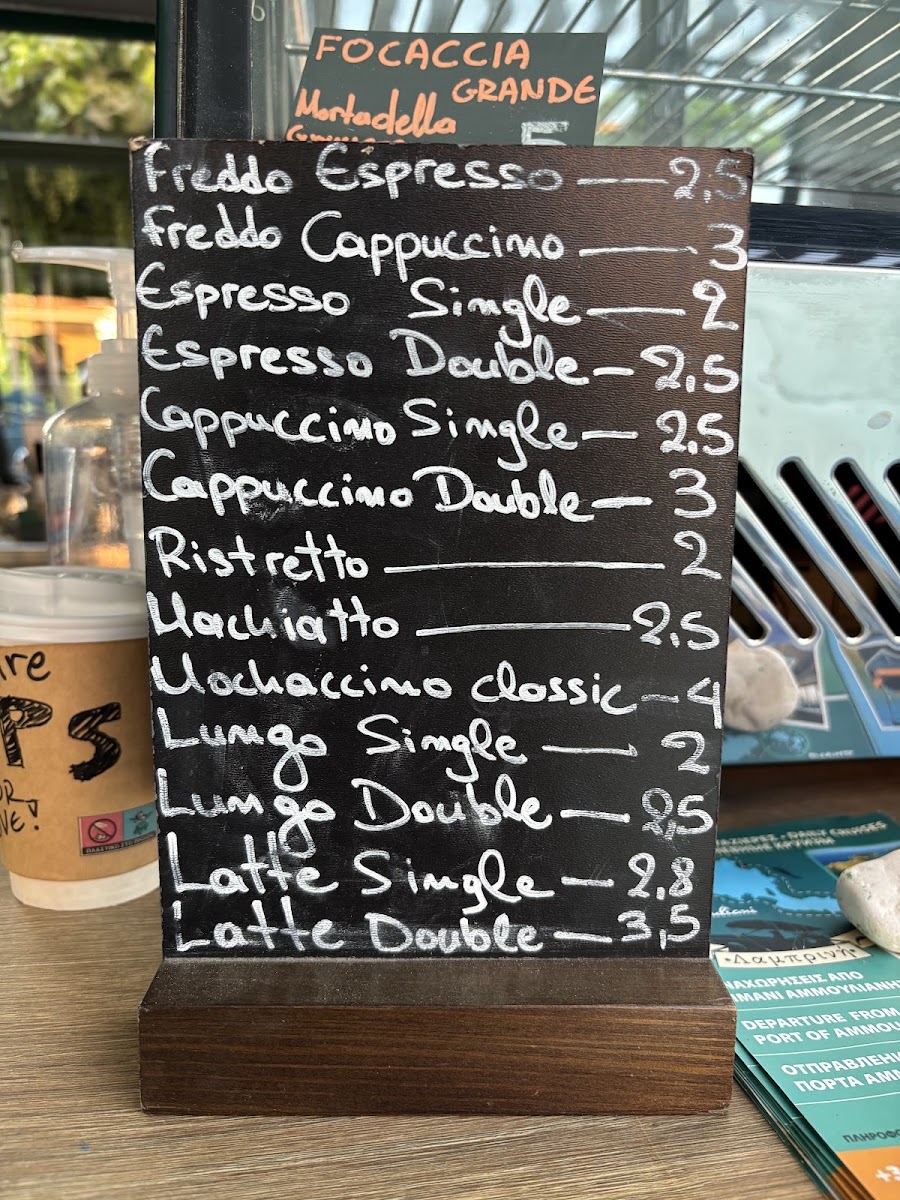 FOCACCIA
GRANDE
Mortadella
5
Freddo Espresso — 2,5
Freddo Cappuccino — 3
Espresso Single — 2
Espresso Double — 2,5
Cappuccino Single — 2,5
Cappuccino Double — 3
Ristretto — 2
Machiatto — 2,5
Mochaccino classic — 4
Lungo Single — 2
Lungo Double — 2,5
Latte Single — 2,8
Latte Double — 3,5
PS
Λαμπρινή
ΑΝΑΧΩΡΗΣΕΙΣ ΑΠΟ
ΛΙΜΑΝΙ ΑΜΜΟΥΛΙΑΝΗ
DEPARTURE FROM
PORT OF AMMOU
ОТПРАВЛЕНИ
ПОРТА АММ
ΠΛΗΡΟΦΟ
+3